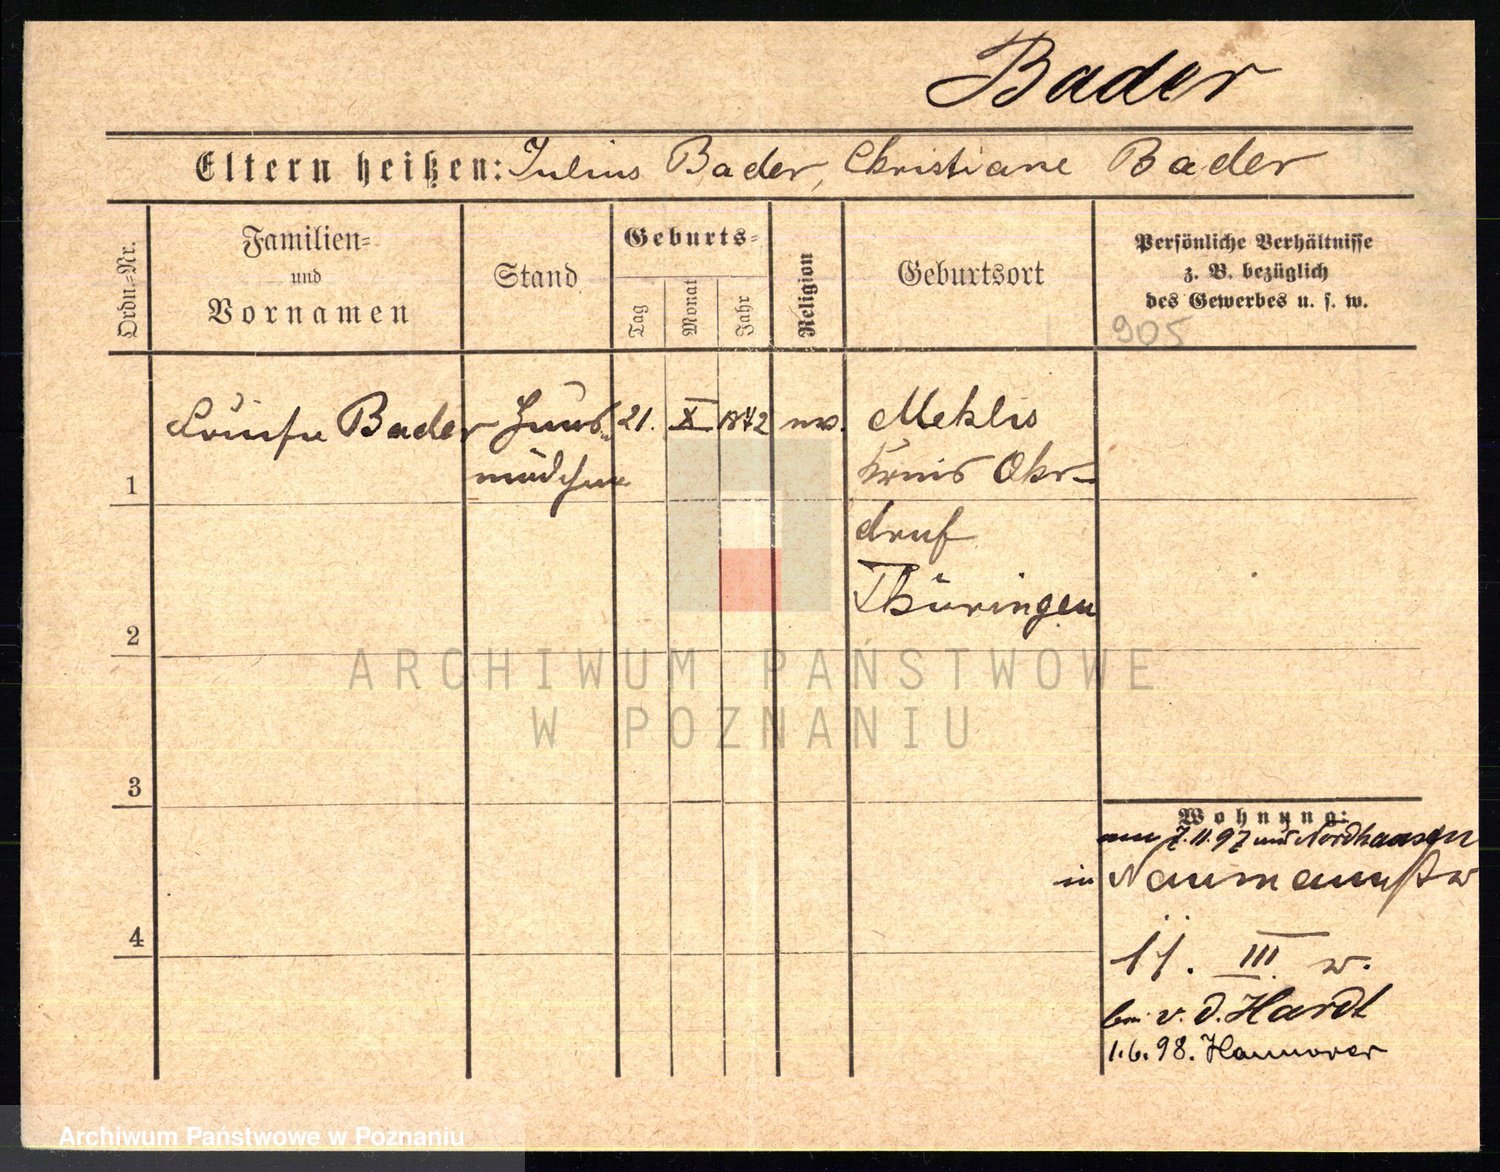 Bader
Eltern heißen: Julius Bader, Christiane Bader
Ordn.-Nr.
Familien-
und
Vornamen
Stand
Geburts-
Tag
Monat
Jahr
Religion
Geburtsort
Persönliche Verhältnisse
z. B. bezüglich
des Gewerbes u. s. w.
905
1
Louise Bader
Haus-
mädchen
21. X 1872
ev.
Mehlis
Kreis Ohr-
druf
Thüringen
2
ARCHIWUM PAŃSTWOWE
W POZNANIU
3
4
Wohnung:
am 7.11.97 aus Nordhausen
in Naumannstr
11. III
bei v. d. Hardt
1.6.98. Hannover
Archiwum Państwowe w Poznaniu